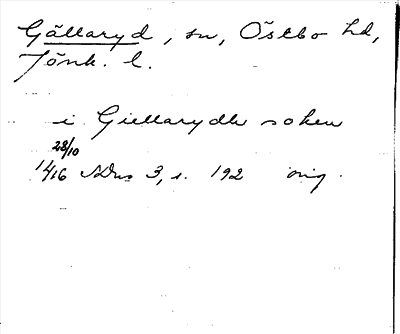 Gällaryd, sn, Östbo hd,
Jönk. l.
i Giellarydh soken
28/10
1416 SDns 3, s. 192 orig.